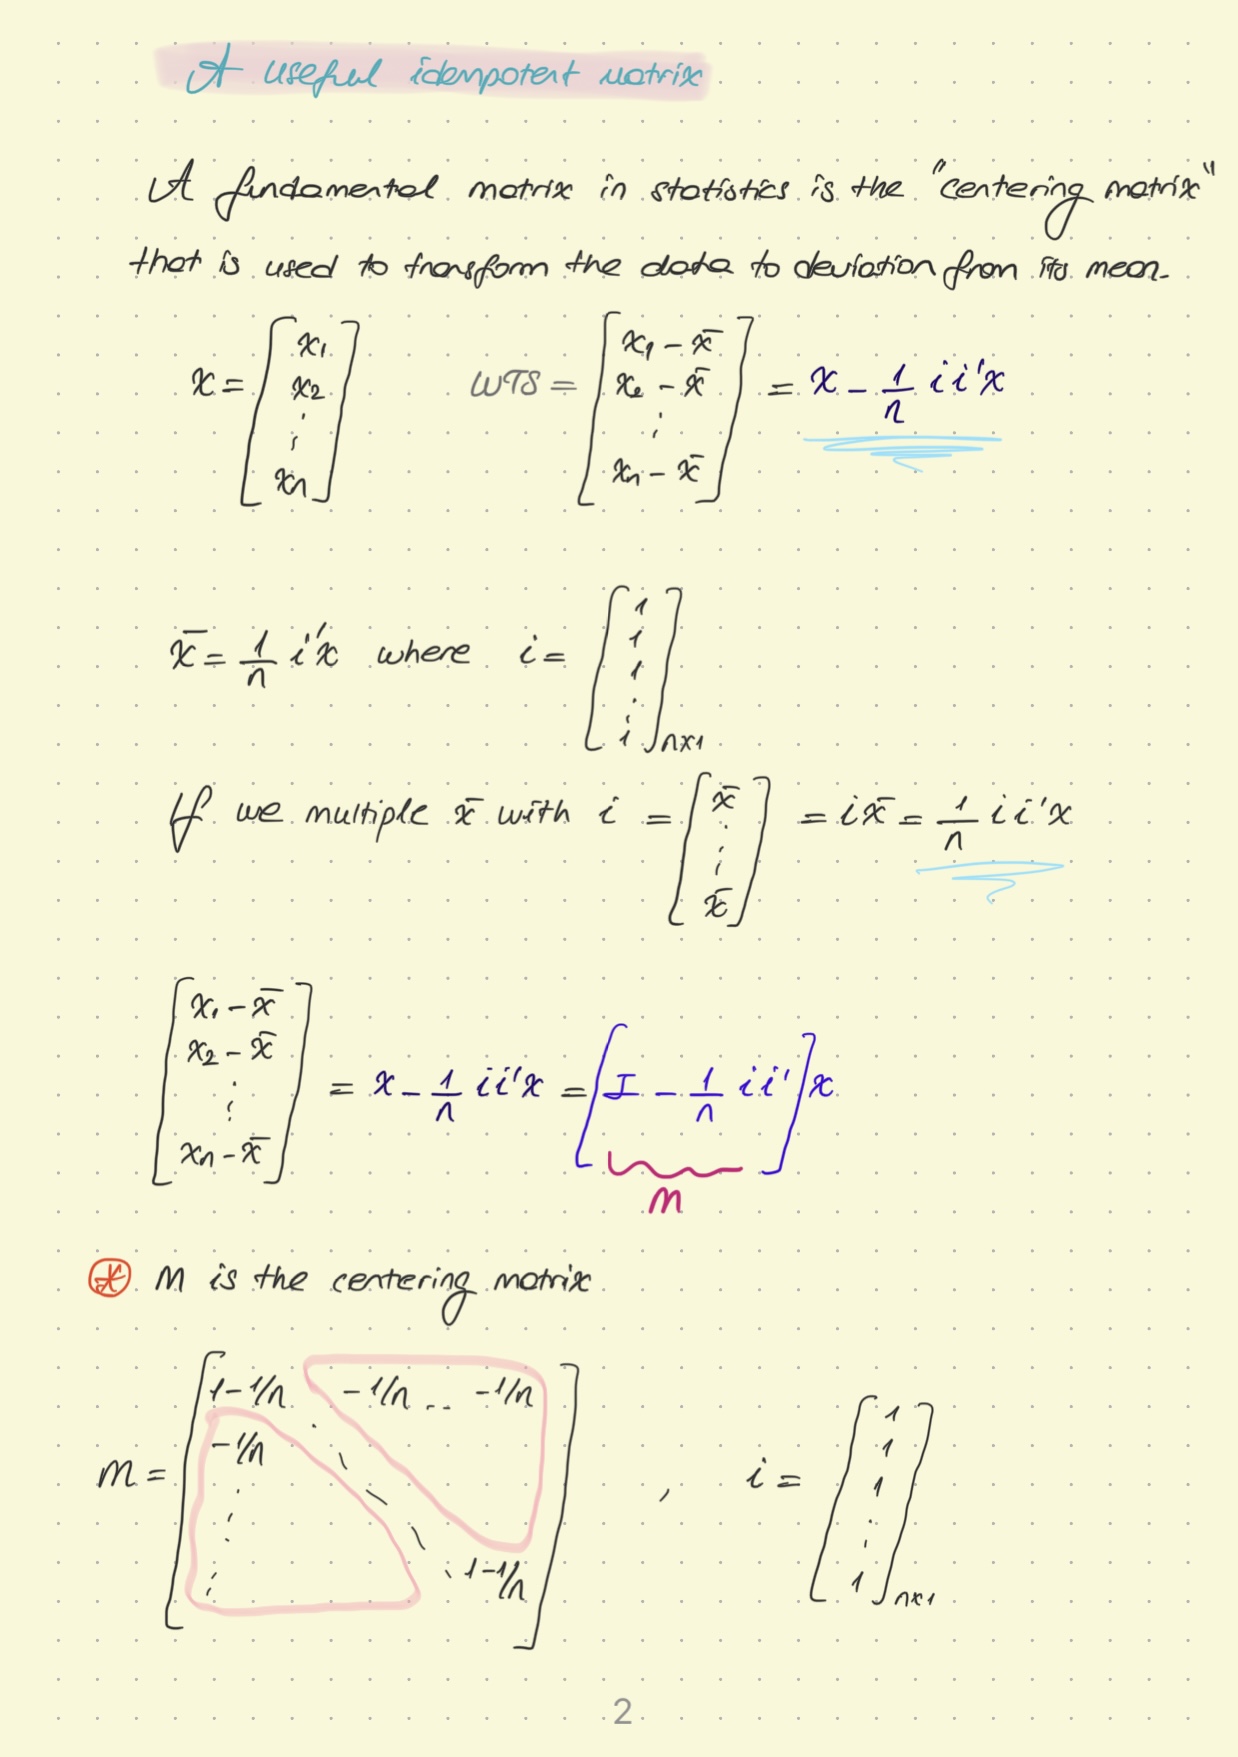 A useful idempotent matrix
A fundamental matrix in statistics is the "centering matrix"
that is used to transform the data to deviation from its mean.
x = [x₁ x₂ ⋮ xₙ] WTS = [x₁ - x̄ x₂ - x̄ ⋮ xₙ - x̄] = x - 1/n i i'x
x̄ = 1/n i'x where i = [1 1 1 ⋮ 1] nx1
If we multiple x̄ with i = [x̄ ⋮ x̄] = i x̄ = 1/n i i'x
[x₁ - x̄ x₂ - x̄ ⋮ xₙ - x̄] = x - 1/n i i'x = [I - 1/n i i'] x
M
* M is the centering matrix
M = [1 - 1/n - 1/n ... - 1/n - 1/n ⋮ ⋱ 1 - 1/n] , i = [1 1 1 ⋮ 1] nx1
2